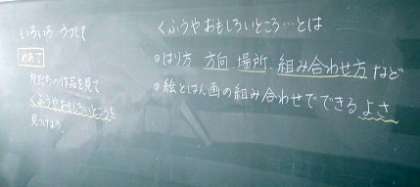 いろいろ うつして
めあて
友だちの作品を見て
くふうやおもしろいところを
見つけよう。
くふうやおもしろいところ…とは
○はり方 方向 場所、組み合わせ方 など
○絵とはん画の組み合わせでできるよさ